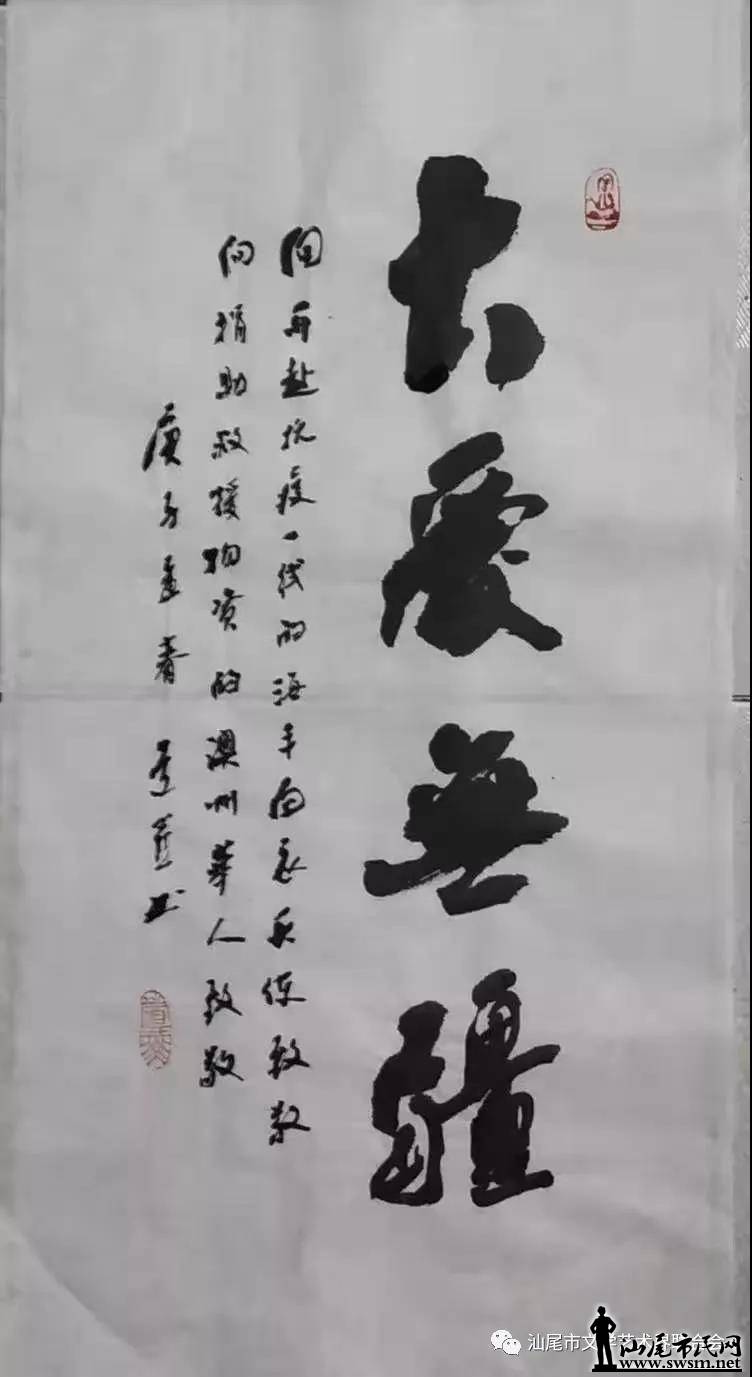 大爱無疆
向再赴抗疫一线的海丰白衣天使致敬
向捐助救援物资的澳洲華人致敬
庚子孟春 书
汕尾市文学艺术界联合会
汕尾市民网
www.swsm.net